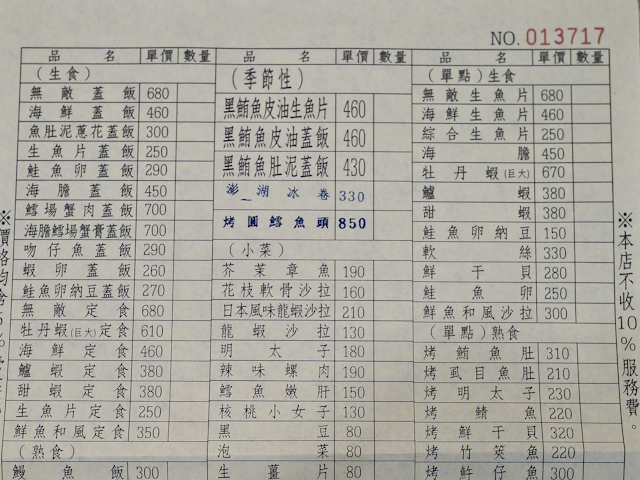 NO. 013717
品名 單價 數量
(生食)
無敵蓋飯 680
海鮮蓋飯 460
魚肚泥蔥花蓋飯 300
生魚片蓋飯 250
鮭魚卵蓋飯 290
海膽蓋飯 450
鱈場蟹肉蓋飯 700
海膽鱈場蟹膏蓋飯 700
吻仔魚蓋飯 290
蝦卵蓋飯 260
鮭魚卵納豆蓋飯 270
無敵定食 680
牡丹蝦(巨大)定食 610
海鮮定食 460
鱸蝦定食 380
甜蝦定食 380
生魚片定食 250
鮮魚和風定食 350
(熟食)
鰻魚飯 300
品名 單價 數量
(季節性)
黑鮪魚皮油生魚片 460
黑鮪魚皮油蓋飯 460
黑鮪魚肚泥蓋飯 430
澎湖冰卷 330
烤圓鱈魚頭 850
(小菜)
芥茉章魚 190
花枝軟骨沙拉 160
日本風味龍蝦沙拉 210
龍蝦沙拉 130
明太子 180
辣味螺肉 190
鱈魚嫩肝 150
核桃小女子 130
黑豆 80
泡菜 80
生薑片 80
品名 單價 數量
(單點)生食
無敵生魚片 680
海鮮生魚片 460
綜合生魚片 250
海膽 450
牡丹蝦(巨大) 670
鱸蝦 380
甜蝦 380
鮭魚卵納豆 150
軟絲 330
鮮干貝 280
鮭魚卵 250
鮮魚和風沙拉 300
(單點)熟食
烤鮪魚肚 310
烤虱目魚肚 210
烤明太子 230
烤鯖魚 220
烤鮮干貝 320
烤竹筴魚 220
烤魽仔魚 300
※本店不收10%服務費。
※價格均含5%